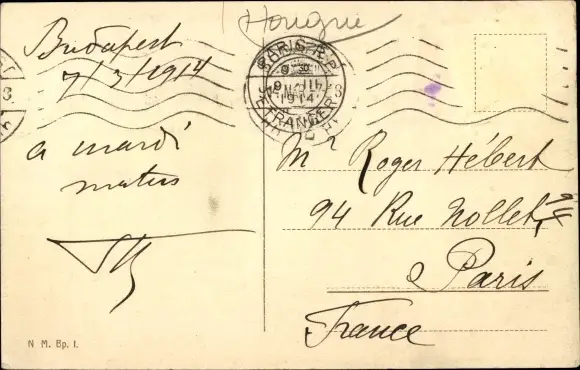 Hongrie
Budapest
7/3/1914
PARIS R.P.
9 III
1914
ETRANGER
a mardi
matin
Mr Roger Hébert
94 Rue Nollet
Paris
France
N. M. Bp. I.